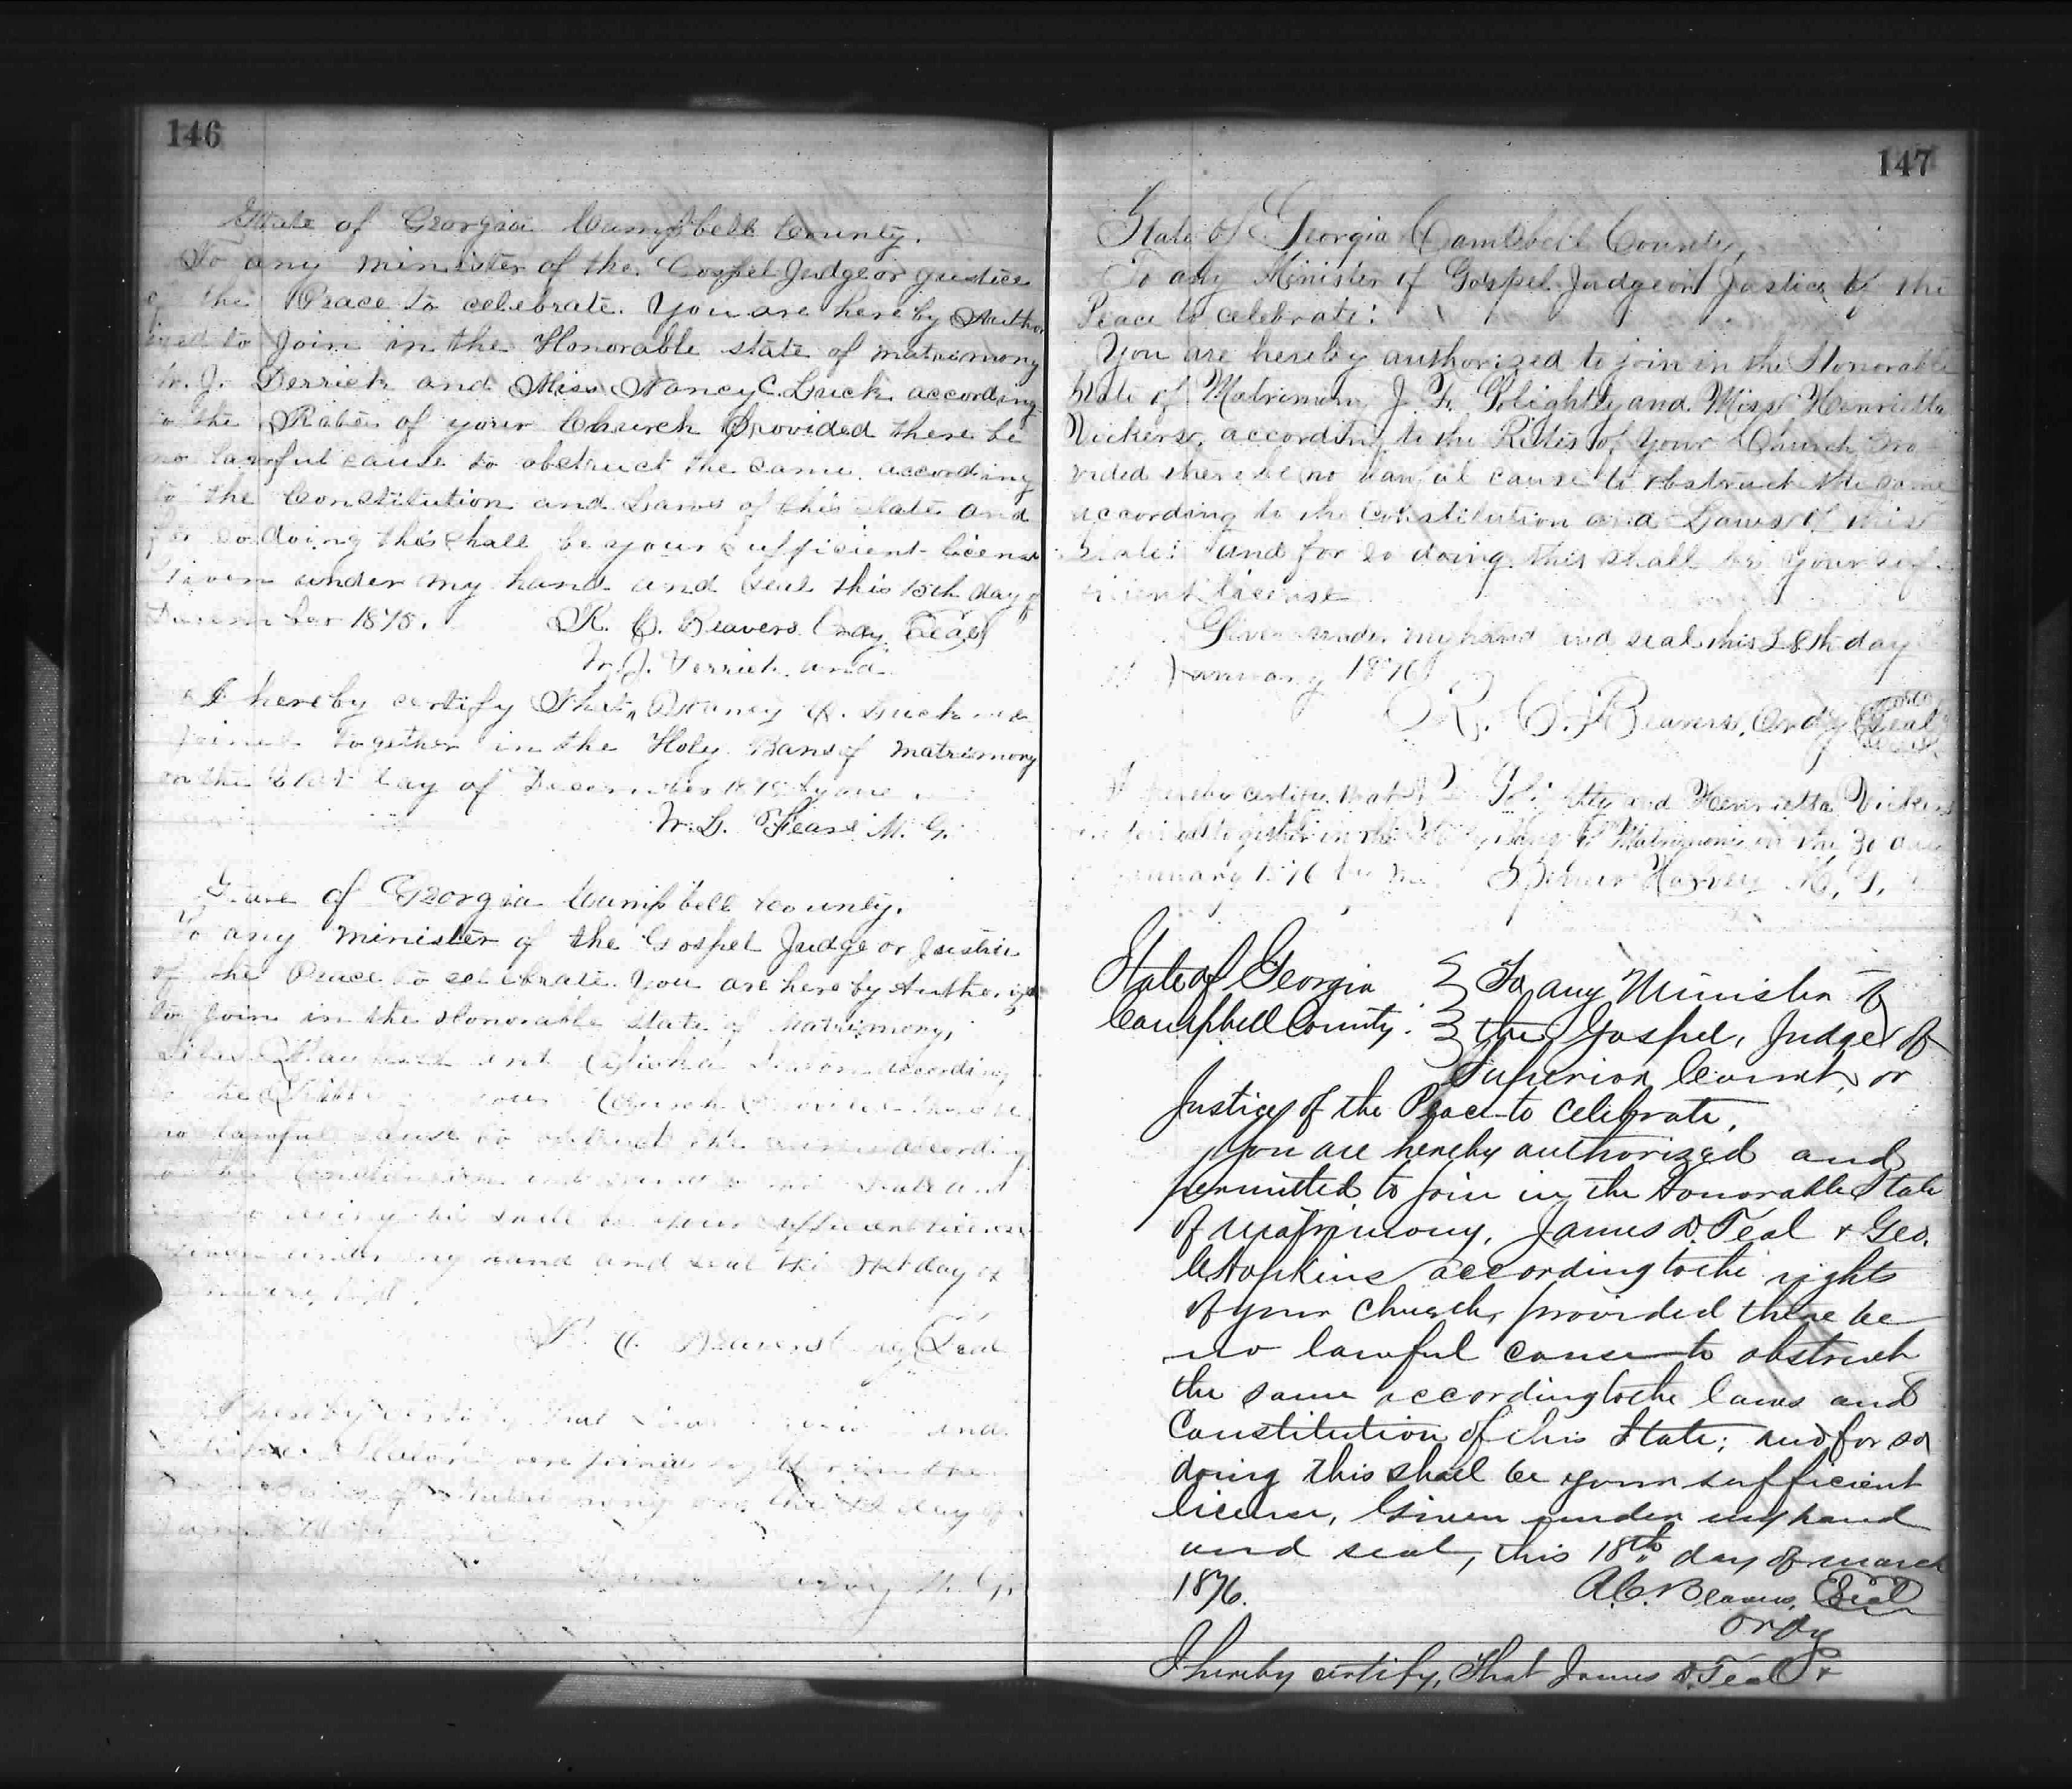 146
State of Georgia Campbell County.
To any minister of the Gospel Judge or Justice
of the Peace to celebrate. You are hereby Author
ized to Join in the Honorable state of matrimony
W. J. Derrick and Miss Nancy C. Luck according
to the Rites of your Church Provided there be
no lawful cause to obstruct the same according
to the Constitution and Laws of this state and
for so doing this shall be your sufficient license
Given under my hand and seal this 15th day of
December 1875. R. C. Beavers Ordy Seal
W. J. Derrick and
I hereby certify That Nancy C. Luck were
joined together in the Holy Bans of matrimony
on the 21st day of December 1875 by me
W. L. Fears M. G.
State of Georgia Campbell County.
To any minister of the Gospel Judge or Justice
of the Peace to celebrate. You are hereby Authorized
to Join in the Honorable state of Matrimony,
and according
to the your Church
no lawful cause to obstruct the same according
to the Constitution and State and
so doing this shall be your sufficient license
Given under my hand and seal this day of
R. C. Beavers Ordy Seal
I hereby certify that and
were joined together in the
of Matrimony on the day of
M. G.
147
State of Georgia Campbell County,
To any Minister of Gospel Judge or Justice of the
Peace to celebrate:
You are hereby authorized to join in the Honorable
State of Matrimony J. F. Golightly and Miss Henrietta
Vickers, according to the Rites of your Church, pro
vided there be no lawful cause to obstruct the same
according to the Constitution and Laws of this
State: and for so doing this shall be your suf
ficient license
Given under my hand and seal this 28th day
of January 1876
R. C. Beavers, Ordy Seal
I hereby certify that J. F. Golightly and Henrietta Vickers
were joined together in the Holy Bans of Matrimony on the 30 day
January 1876 by me Harvey M. G.
State of Georgia } To any Minister of
Campbell County. } the Gospel, Judge of
Superior Court, or
Justice of the Peace to celebrate,
You are hereby authorized and
permitted to join in the Honorable State
of matrimony, James D. Teal & Geo.
C Hopkins according to the rights
of your church, provided there be
no lawful cause to obstruct
the same according to the laws and
Constitution of this State; and for so
doing this shall be your sufficient
license, Given under my hand
and seal, this 18th day of march
1876. R. C. Beavers, Seal
Ordy
I hereby certify, that James D. Teal &